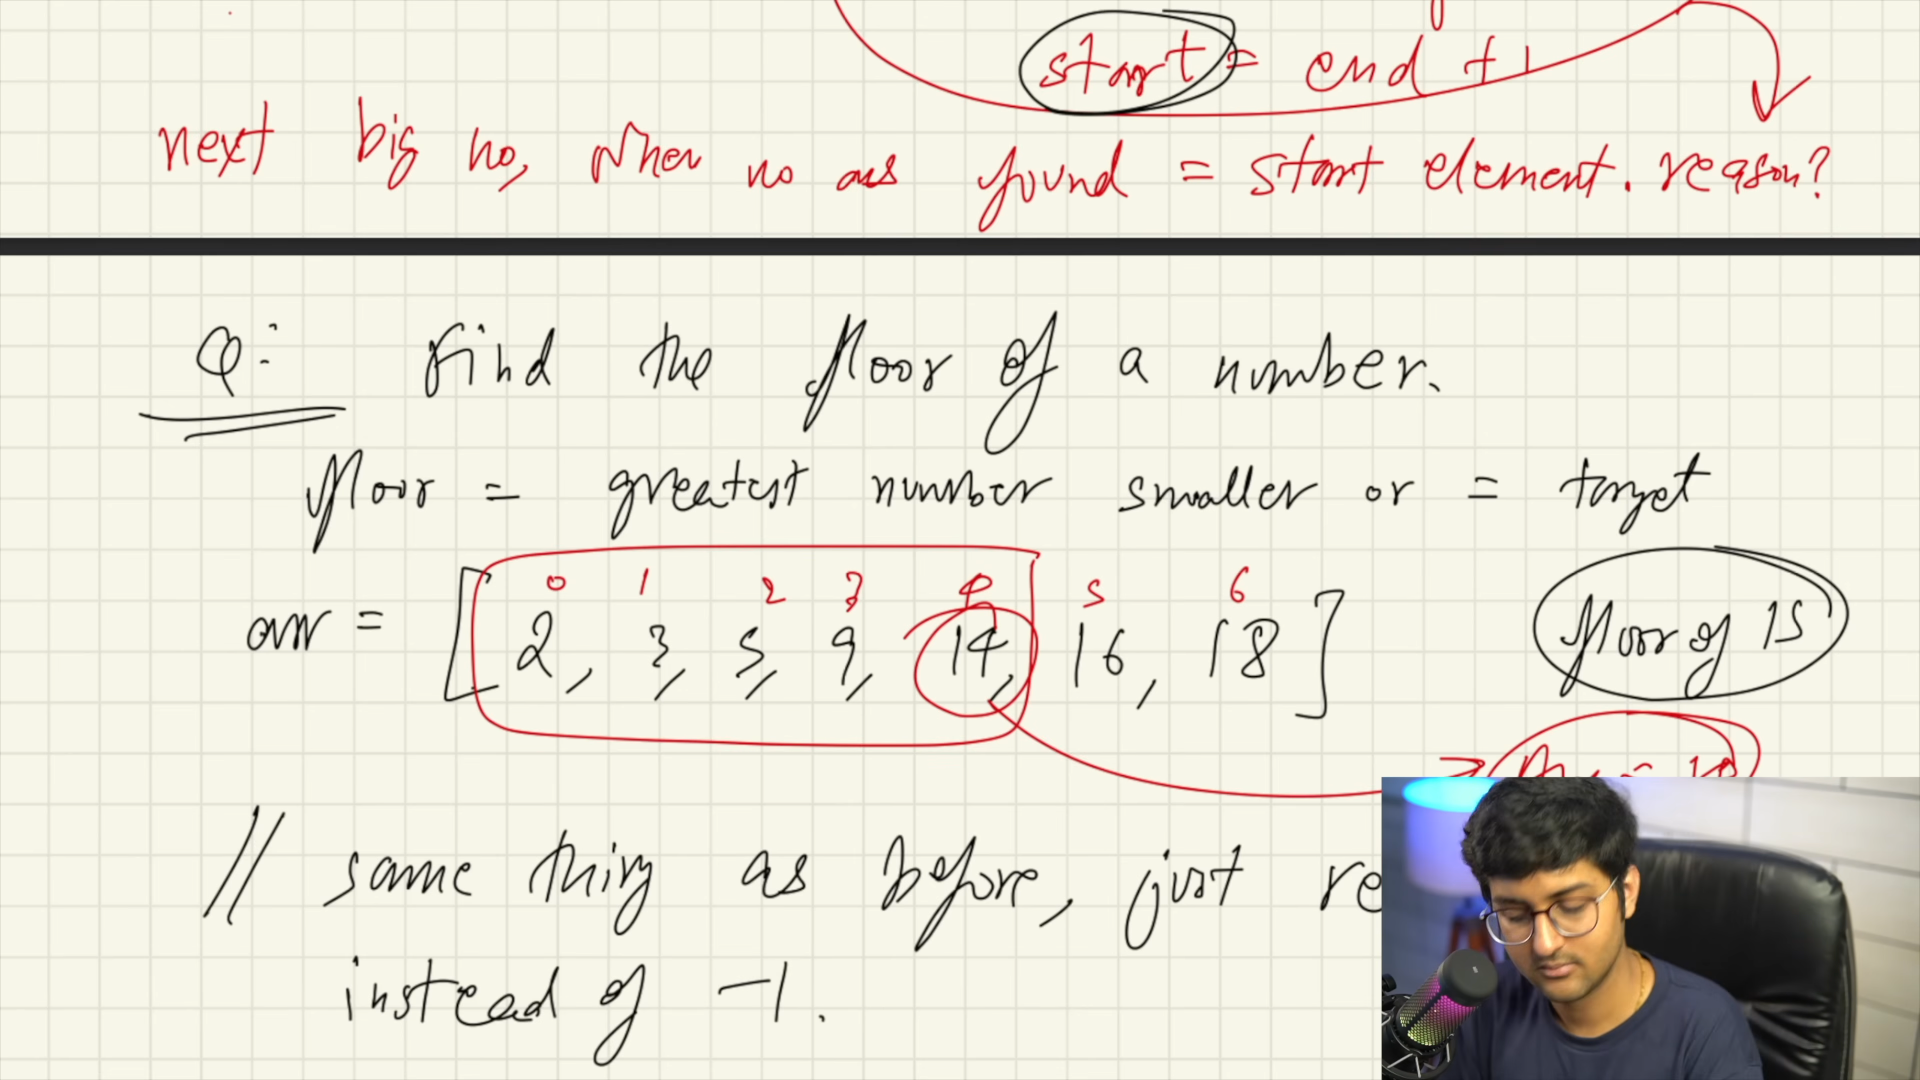 start = end + 1
next big no, when no ans found = start element. reason?
Q: Find the floor of a number.
floor = greatest number smaller or = target
0 1 2 3 4 5 6
arr = [2, 3, 5, 9, 14, 16, 18]
floor of 15
// same thing as before, just re
instead of -1.